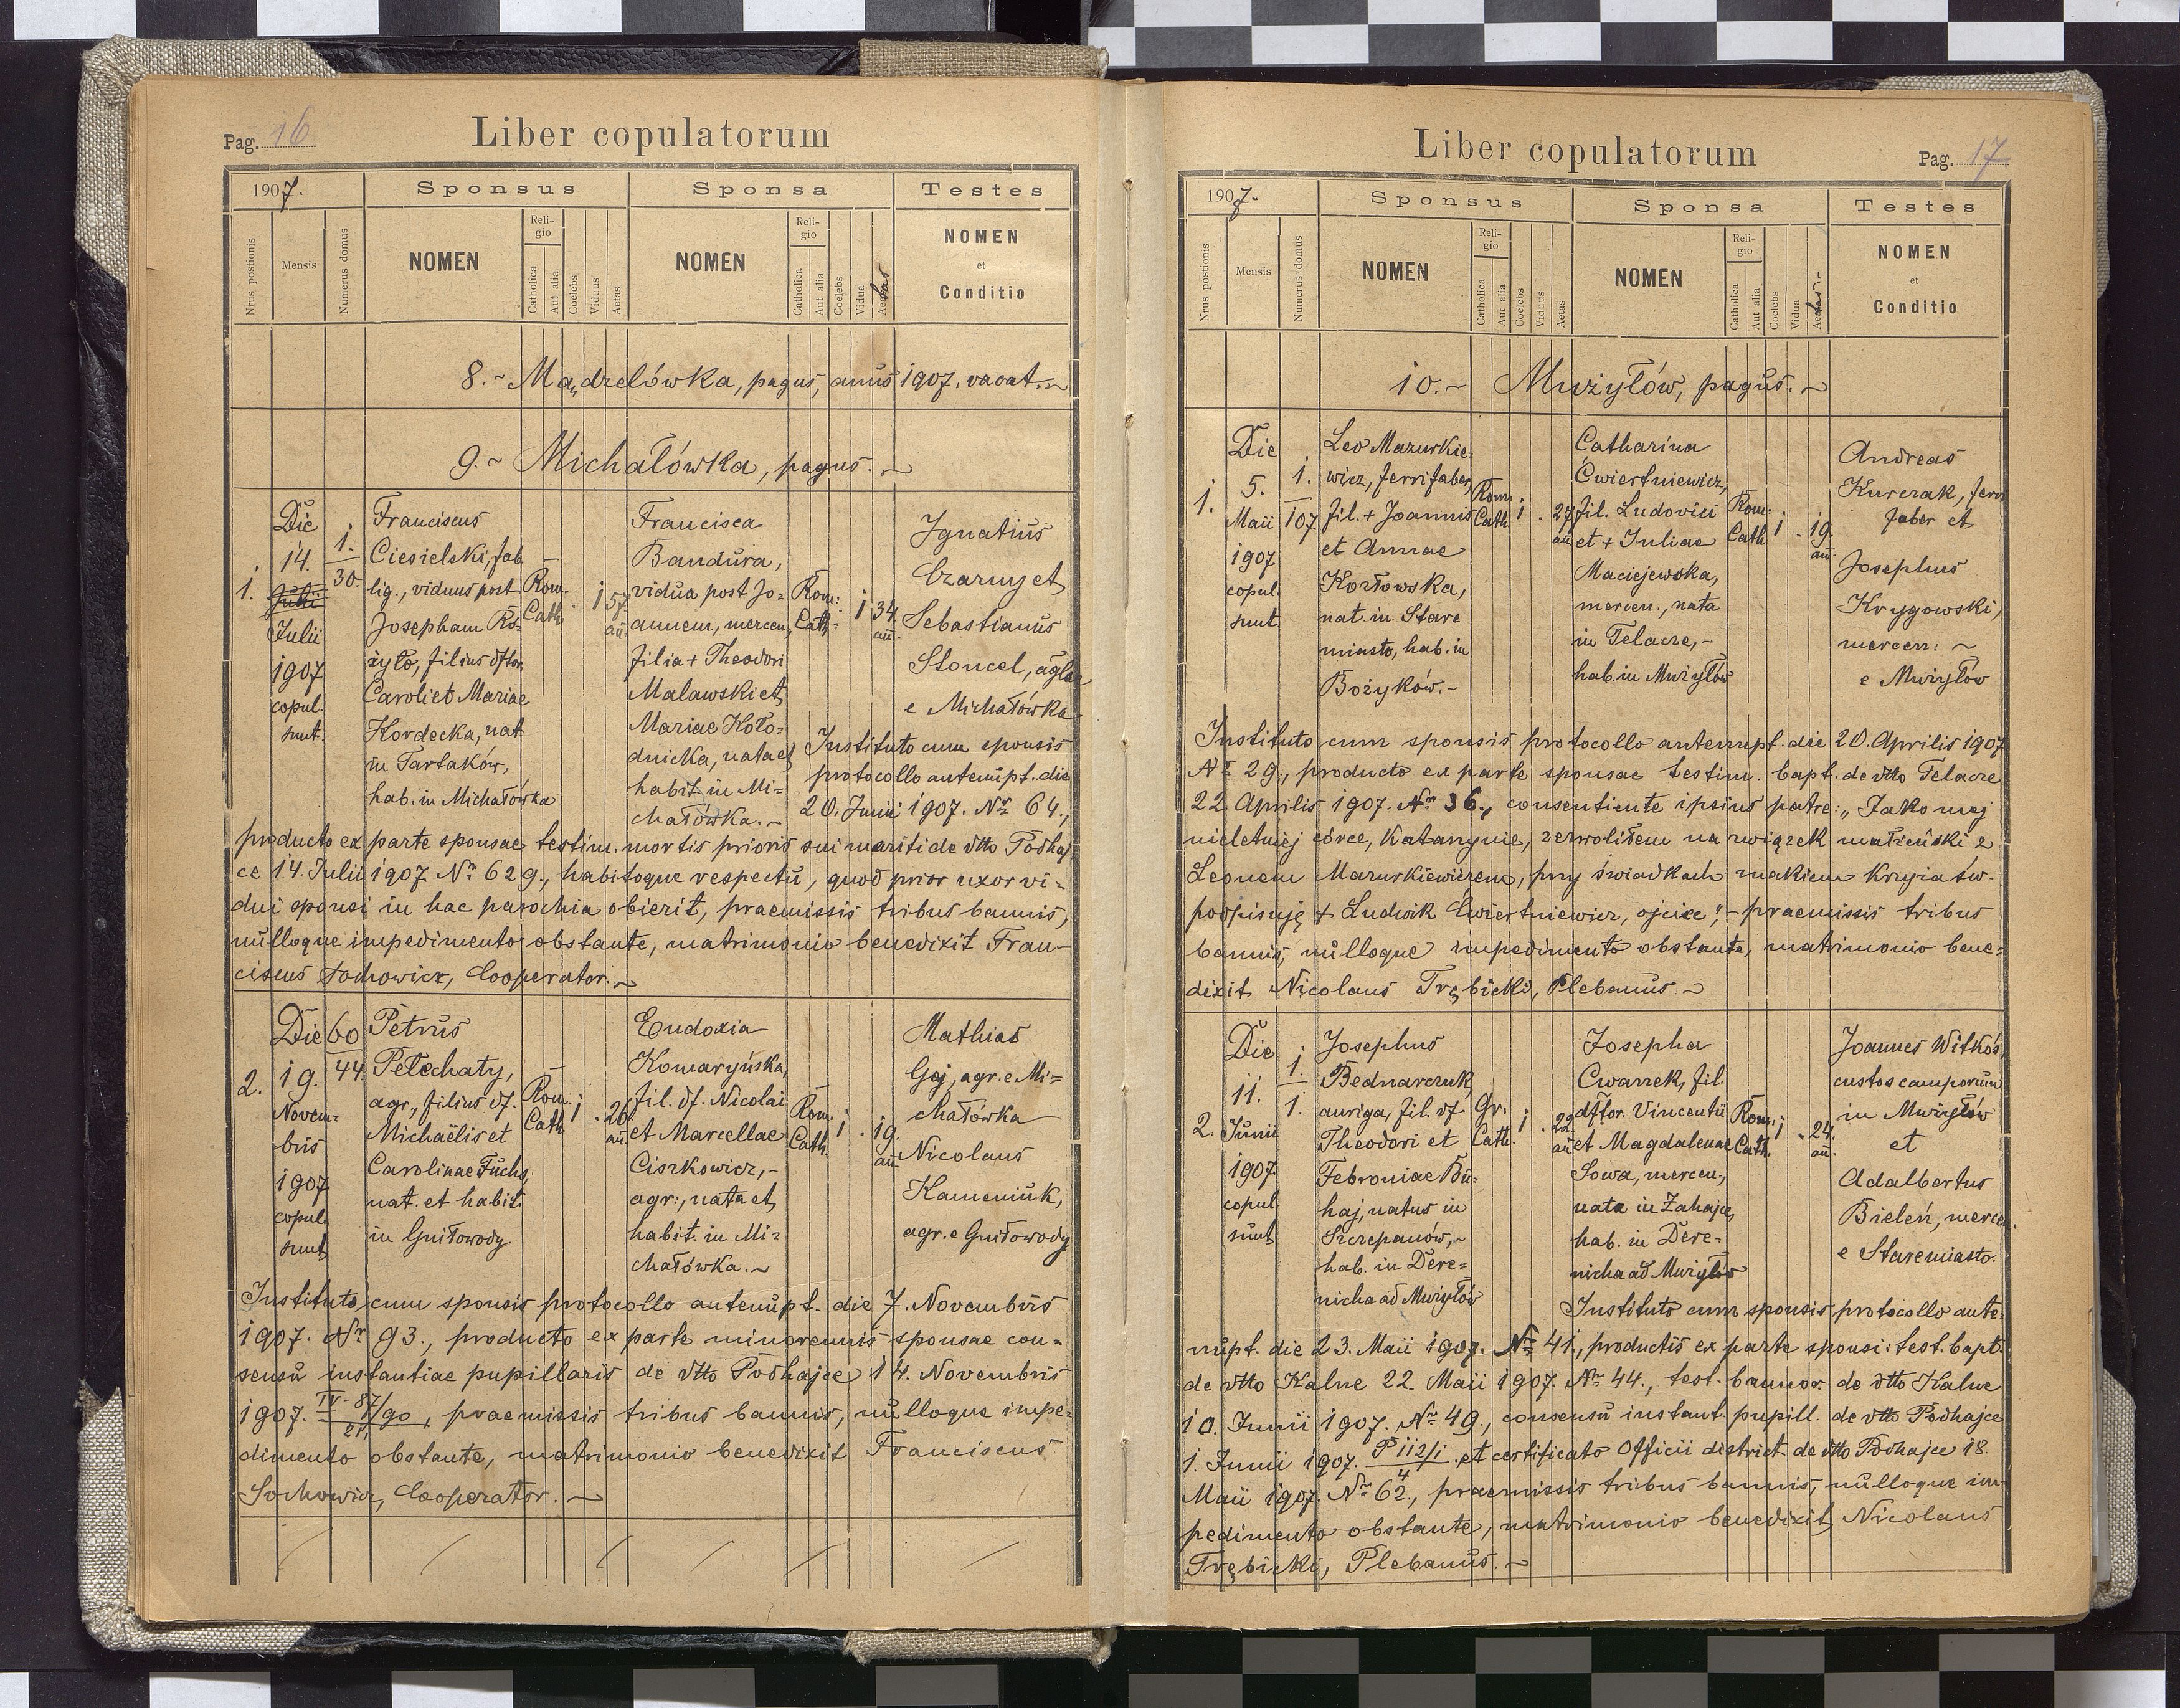 Pag. 16
Liber copulatorum
1907.
Sponsus
Sponsa
Testes
Nrus postionis
Mensis
Numerus domus
NOMEN
Religio
Catholica
Aut alia
Coelebs
Viduus
Aetas
NOMEN
Religio
Catholica
Aut alia
Coelebs
Vidua
Aetas
NOMEN
et
Conditio
8.~ Mądzelówka, pagus, annus 1907. vacat.~
9.~ Michałówka, pagus.~
1.
Die
14.
Julii
1907
copul.
sunt.
1.
30.
Franciscus
Ciesielski, fab.
lig., viduus post
Josepham Ro-
żyło, filius dftor.
Caroli et Mariae
Kordecka, nat
in Tartaków,
hab. in Michałówka
Rom.
Cath.
1
57.
an.
Francisca
Bandura,
vidua post Jo=
annem, mercen.,
filia + Theodori
Malawski et
Mariae Koło=
dnicka, nata et
habit in Mi=
chałówka.~
Rom.
Cath.
1
34.
an.
Ignatius
Czarny et
Sebastianus
Stoncel,
e Michałówka
Instituto cum sponsis
protocollo antenupt. die
20. Junii 1907. Nr 64.,
producto ex parte sponsae testim. mortis prioris sui mariti de dtto Podhaj
ce 14. Julii 1907 Nr 629., habitoque respectu, quod prior uxor vi=
dui sponsi in hac parochia obierit, praemissis tribus bannis,
nulloque impedimento obstante, matrimonio benedixit Fran-
ciscus Sochowicz, Cooperator.~
2.
Die
19.
Novem=
bris
1907
copul.
sunt
60
44.
Petrus
Petechaty,
agr., filius df.
Michaëlis et
Carolinae Fuchs,
nat. et habit.
in Gniłowody
Rom.
Cath.
1
.
26
an.
Eudoxia
Komaryńska,
fil. df. Nicolai
et Marcellae
Ciszkowicz,-
agr:, nata et
habit. in Mi=
chałówka.~
Rom.
Cath.
1
.
19.
an.
Mathias
Goj, agr. e Mi=
chałówka
Nicolaus
Kameniuk,
agr. e Gniłowody
Instituto cum sponsis protocollo antenupt. die 7. Novembris
1907. Nr 93., producto ex parte minorennis sponsae con=
sensu instantiae pupillaris de dtto Podhajce 14. Novembris
1907. praemissis tribus bannis, nulloque impe=
dimento obstante, matrimonio benedixit Franciscus
Sochowicz, Cooperator.~
Liber copulatorum
Pag. 17
1907.
Sponsus
Sponsa
Testes
Nrus postionis
Mensis
Numerus domus
NOMEN
Religio
Catholica
Aut alia
Coelebs
Viduus
Aetas
NOMEN
Religio
Catholica
Aut alia
Coelebs
Vidua
Aetas
NOMEN
et
Conditio
10.~ Mużyłów, pagus.~
1.
Die
5.
Maii
1907
copul.
sunt
1.
107.
Leo Mazurkie=
wicz, ferri faber,
fil. + Joannis
et Annae
Kozłowska,
nat. in Stare
miasto, hab. in
Bożyków.-
Rom.
Cath.
1
.
27
an.
Catharina
Ćwiertniewicz,
fil. Ludovici
et + Juliae
Maciejewska,
mercen., nata
in Telacze,-
hab. in Mużyłów
Rom.
Cath.
1
.
19.
an.
Andreas
Kurczak, ferri
faber et
Josephus
Krygowski,
mercen: ~
e Mużyłów
Instituto cum sponsis protocollo antenupt. die 20. Aprilis 1907
Nr 29., producto ex parte sponsae testim. bapt. de dtto Telacze
22. Aprilis 1907. Nr 36., consentiente ipsius patre: „Jako mej
nieletniej córce, Katarzynie, zezwoliłem na związek małżeński z
Leonem Mazurkiewiczem, przy świadkach znakiem krzyża św.
podpisuję + Ludwik Ćwiertniewicz, ojciec",- praemissis tribus
bannis, nulloque impedimento obstante, matrimonio bene=
dixit Nicolaus Trębicki, Plebanus.~
2.
Die
11.
Junii
1907
copul.
sunt
1.
1.
Josephus
Bednarczuk
auriga, fil. df
Theodori et
Febroniae Bu=
haj, natus in
Szczepanów,-
hab. in Dere=
nicha ad Mużyłów
Gr.
Cath.
1
.
22.
an.
Josepha
Cwanek, fil.
dftor. Vincentii
et Magdalenae
Sowa, mercen.,
nata in Zahajce,
hab. in Dere=
nicha ad Mużyłów
Rom.
Cath.
1
.
24.
an.
Joannes Witkoś,
custos camporum
in Mużyłów
et
Adalbertus
Bieleń, mercen.
e Staremiasto.
Instituto cum sponsis protocollo ante=
nupt. die 23. Maii 1907. Nr 41., productis ex parte sponsi: test. bapt.
de dtto Kalne 22. Maii 1907. Nr 44., test. bannor. de dtto Kalne
10. Junii 1907. Nr 49., consensu instant. pupill. de dtto Podhajce
1. Junii 1907. P 112/1 4 et certificato Officii district. de dtto Podhajce 18.
Maii 1907. Nr 62., praemissis tribus bannis, nulloque im-
pedimento obstante, matrimonio benedixit Nicolaus
Trębicki, Plebanus.~